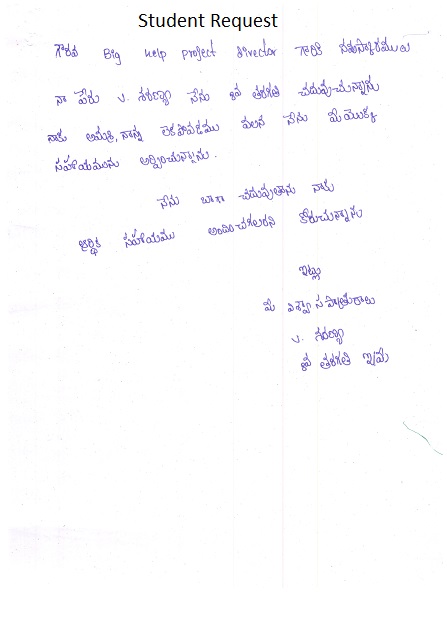 Student Request
గౌరవ Big Help Project Director గారికి నమస్కారములు
నా పేరు V. శరణ్యా నేను 8వ తరగతి చదువుచున్నాను
నాకు అమ్మ, నాన్న లేకపోవడము వలన నేను మీయొక్క
సహాయమును అర్థించుచున్నాను.
నేను బాగా చదువుతాను నాకు
ఆర్థిక సహాయము అందించగలరని కోరుచున్నాను
ఇట్లు
మీ విశ్వాసపాత్రురాలు
V. శరణ్యా
8వ తరగతి